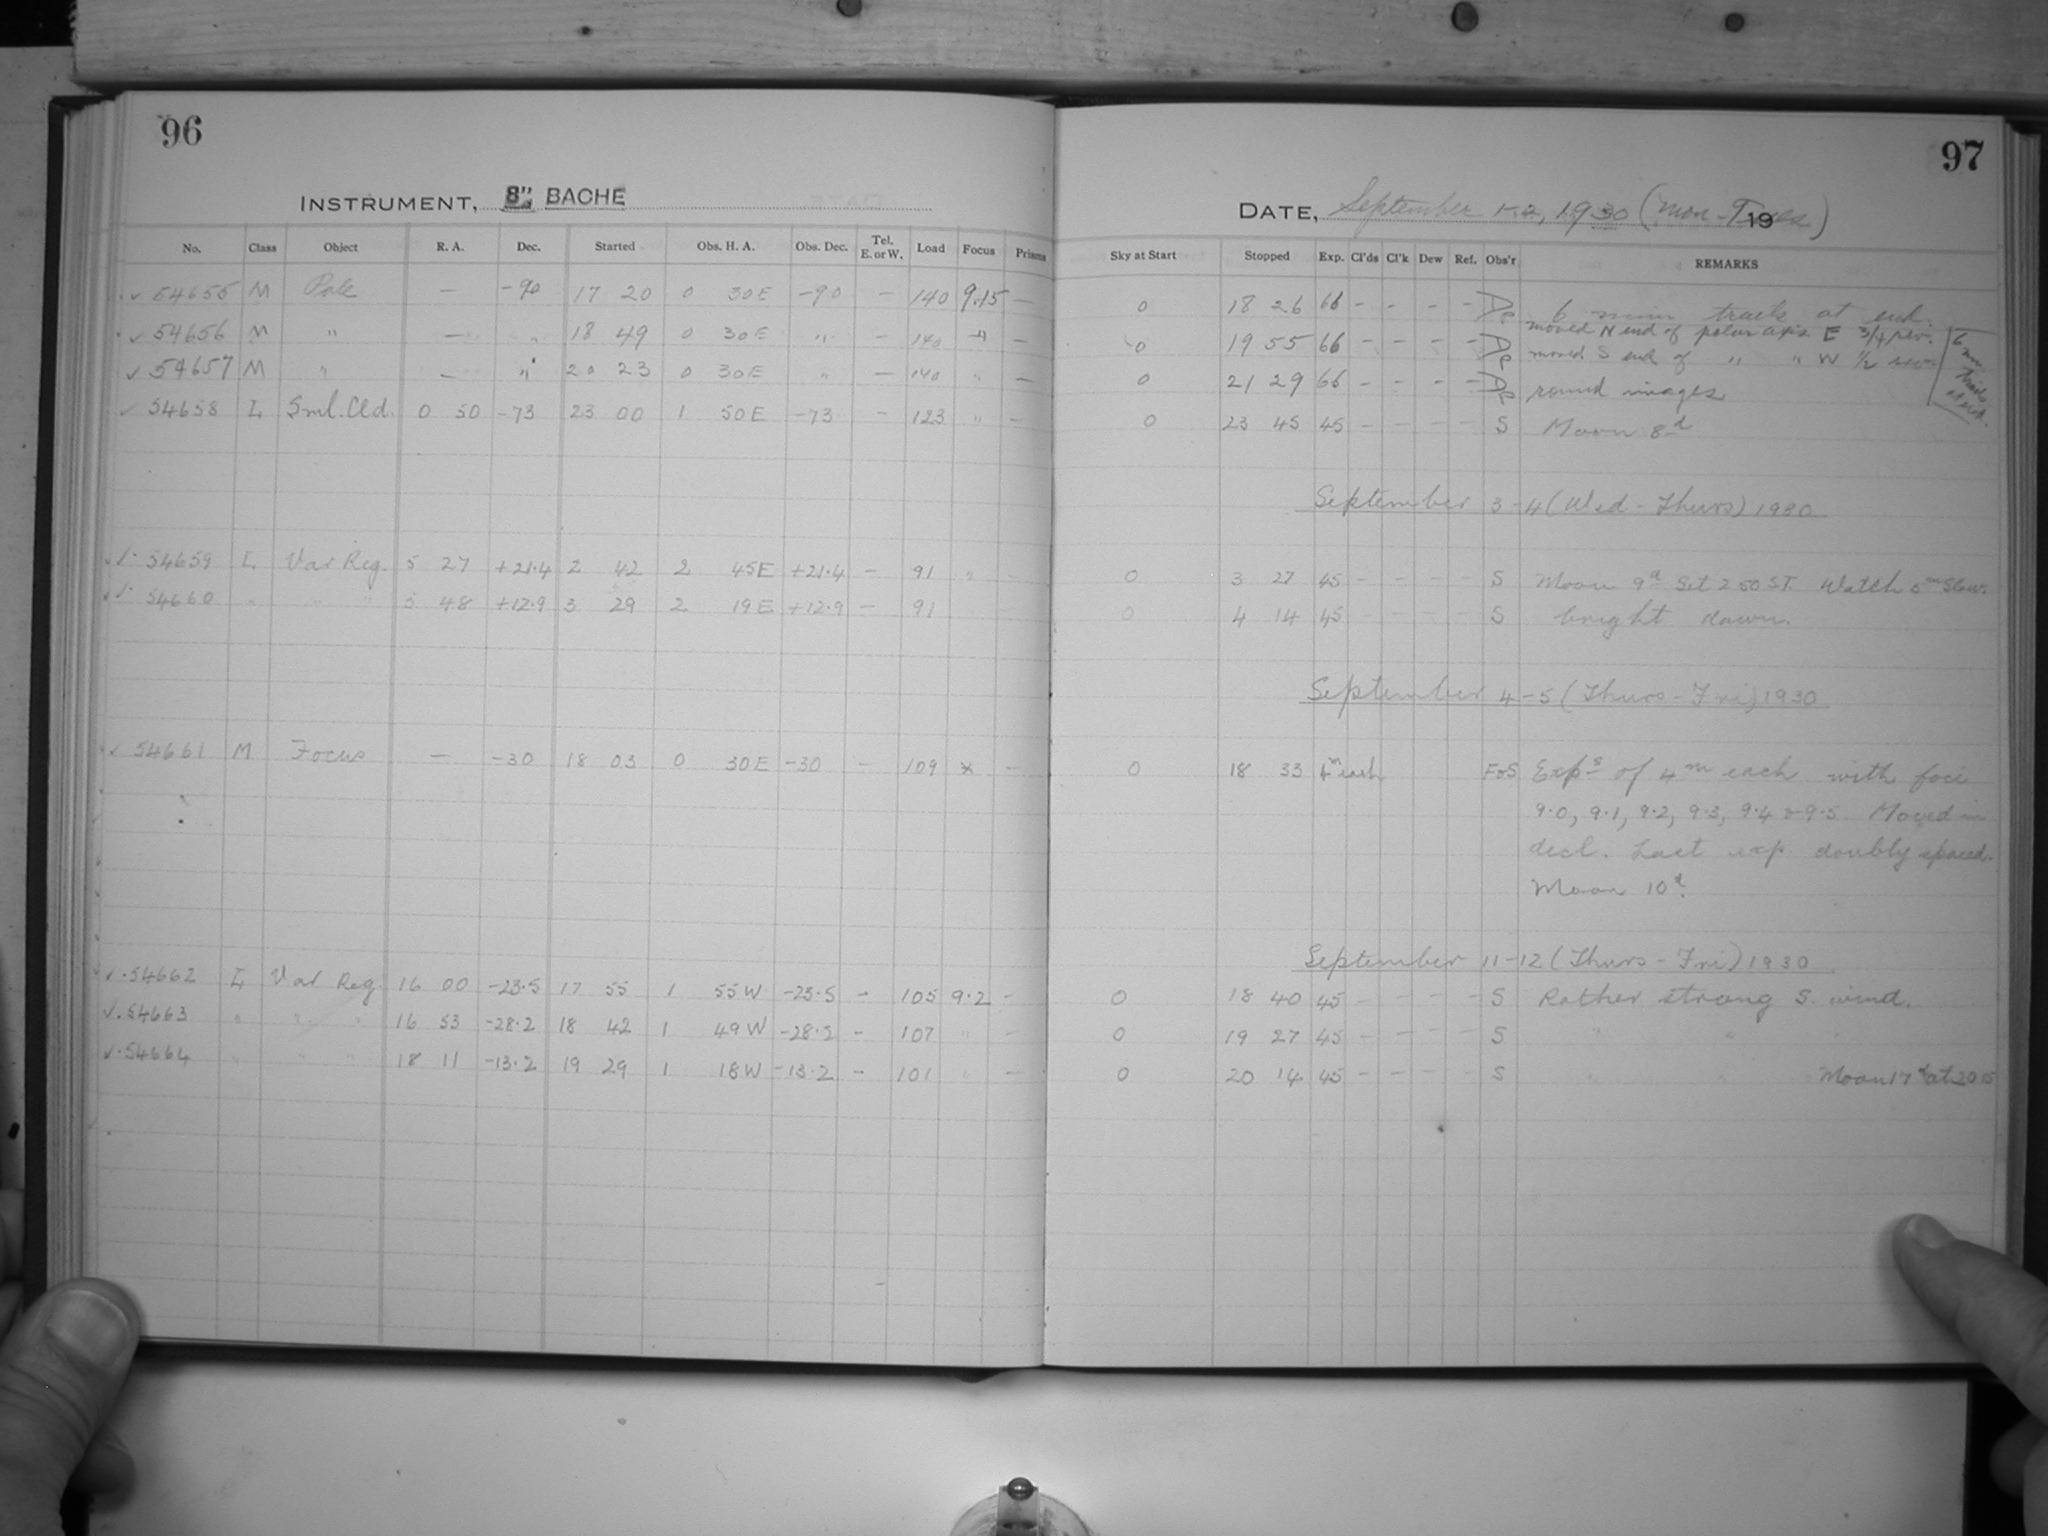 96
INSTRUMENT, 8" BACHE
No. Class Object R. A. Dec. Started Obs. H. A. Obs. Dec. Tel. E. or W. Load Focus Prisms
✓ 54655 M Pole — -90 17 20 0 30E -90 — 140 9.15 —
✓ 54656 M " — " 18 49 0 30E " — 140 " —
✓ 54657 M " — " 20 23 0 30E " — 140 " —
✓ 54658 L Sml. Cld. 0 50 -73 23 00 1 50E -73 — 123 " —
✓ 54659 L Var Reg. 5 27 +21.4 2 42 2 45E +21.4 — 91 " —
✓ 54660 " " " 5 48 +12.9 3 29 2 19E +12.9 — 91
✓ 54661 M Focus — -30 18 03 0 30E -30 — 109 * —
✓ 54662 L Var Reg. 16 00 -23.5 17 55 1 55W -23.5 — 105 9.2 —
✓ 54663 " " " 16 53 -28.2 18 42 1 49W -28.2 — 107 " —
✓ 54664 " " " 18 11 -13.2 19 29 1 18W -13.2 — 101 " —
97
DATE, September 1-2, 1930 (Mon-Tues) 19
Sky at Start Stopped Exp. Cl'ds Cl'k Dew Ref. Obs'r REMARKS
0 18 26 66 — — — — 6 min track at end.
0 19 55 66 — — — — moved N end of polar axis E 3/4 rev.
moved S end of " " W 1/2 rev
0 21 29 66 — — — — round images
6 min trails at end.
0 23 45 45 — — — — S Moon 8d
September 3-4 (Wed-Thurs) 1930
0 3 27 45 — — — — S Moon 9d Set 2 50 ST. Watch 5m Slow.
0 4 14 45 — — — — S bright dawn.
September 4-5 (Thurs-Fri) 1930
0 18 33 4m each F&S Exps of 4m each with foci
9.0, 9.1, 9.2, 9.3, 9.4 & 9.5 Moved in
decl. Last exp. doubly spaced.
Moon 10d.
September 11-12 (Thurs-Fri) 1930
0 18 40 45 — — — — S Rather strong S. wind.
0 19 27 45 — — — — S " " "
0 20 14 45 — — — — S " " Moon 17d at 20 15